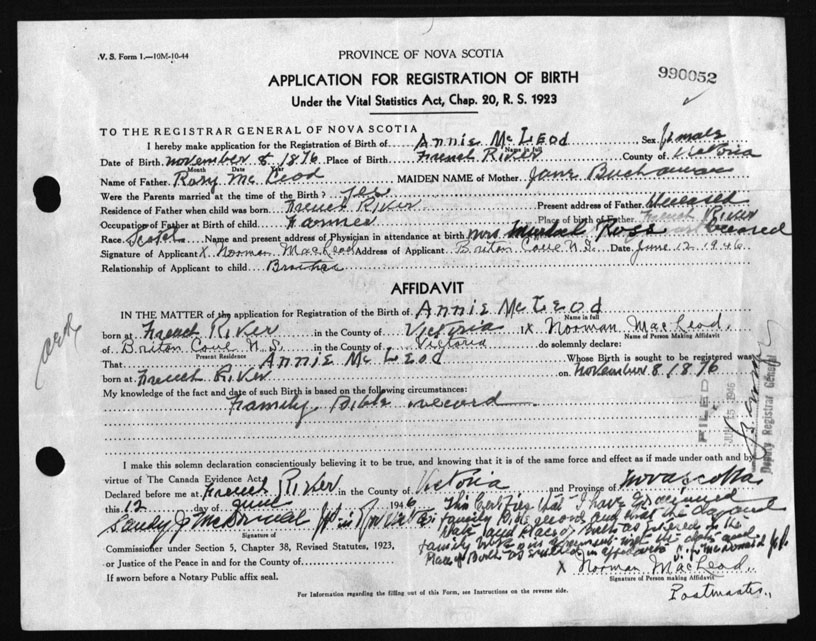 V. S. Form 1.—10M-10-44
PROVINCE OF NOVA SCOTIA
990052
APPLICATION FOR REGISTRATION OF BIRTH
Under the Vital Statistics Act, Chap. 20, R. S. 1923
TO THE REGISTRAR GENERAL OF NOVA SCOTIA
I hereby make application for the Registration of Birth of Annie McLeod Sex female
Name in full
Date of Birth november 8 1876 Place of Birth French River County of Victoria
Month Date Year
Name of Father Rory McLeod MAIDEN NAME of Mother Jane Buchanan
Were the Parents married at the time of the Birth? Yes
Residence of Father when child was born French River Present address of Father deceased
Occupation of Father at Birth of child Farmer Place of birth of Father French River
Race Scotch Name and present address of Physician in attendance at birth mrs Murdock Ross deceased
Signature of Applicant X Norman MacLeod Address of Applicant Briton Cove N.S. Date June 12 1946
Relationship of Applicant to child Brother
AFFIDAVIT
IN THE MATTER of the application for Registration of the Birth of Annie McLeod
Name in full
born at French River in the County of Victoria X Norman MacLeod.
Name of Person Making Affidavit
of Briton Cove N.S. in the County of Victoria do solemnly declare:
Present Residence
That Annie McLeod Whose Birth is sought to be registered was
born at French River on november 8, 1876
My knowledge of the fact and date of such Birth is based on the following circumstances:
Family Bible record
FILED
1946
Deputy Registrar General
I make this solemn declaration conscientiously believing it to be true, and knowing that it is of the same force and effect as if made under oath and by
virtue of The Canada Evidence Act.
Declared before me at French River in the County of Victoria and Province of Nova Scotia
this 12 day of June 1946
This Certifies that I have examined
family Bible record and that the day and
date and place of Birth as entered in the
family Bible
Place of Birth as
Signature of
Commissioner under Section 5, Chapter 38, Revised Statutes, 1923,
or Justice of the Peace in and for the County of
X Norman MacLeod.
Signature of Person making Affidavit
If sworn before a Notary Public affix seal.
Postmaster.
For Information regarding the filling out of this Form, see Instructions on the reverse side.